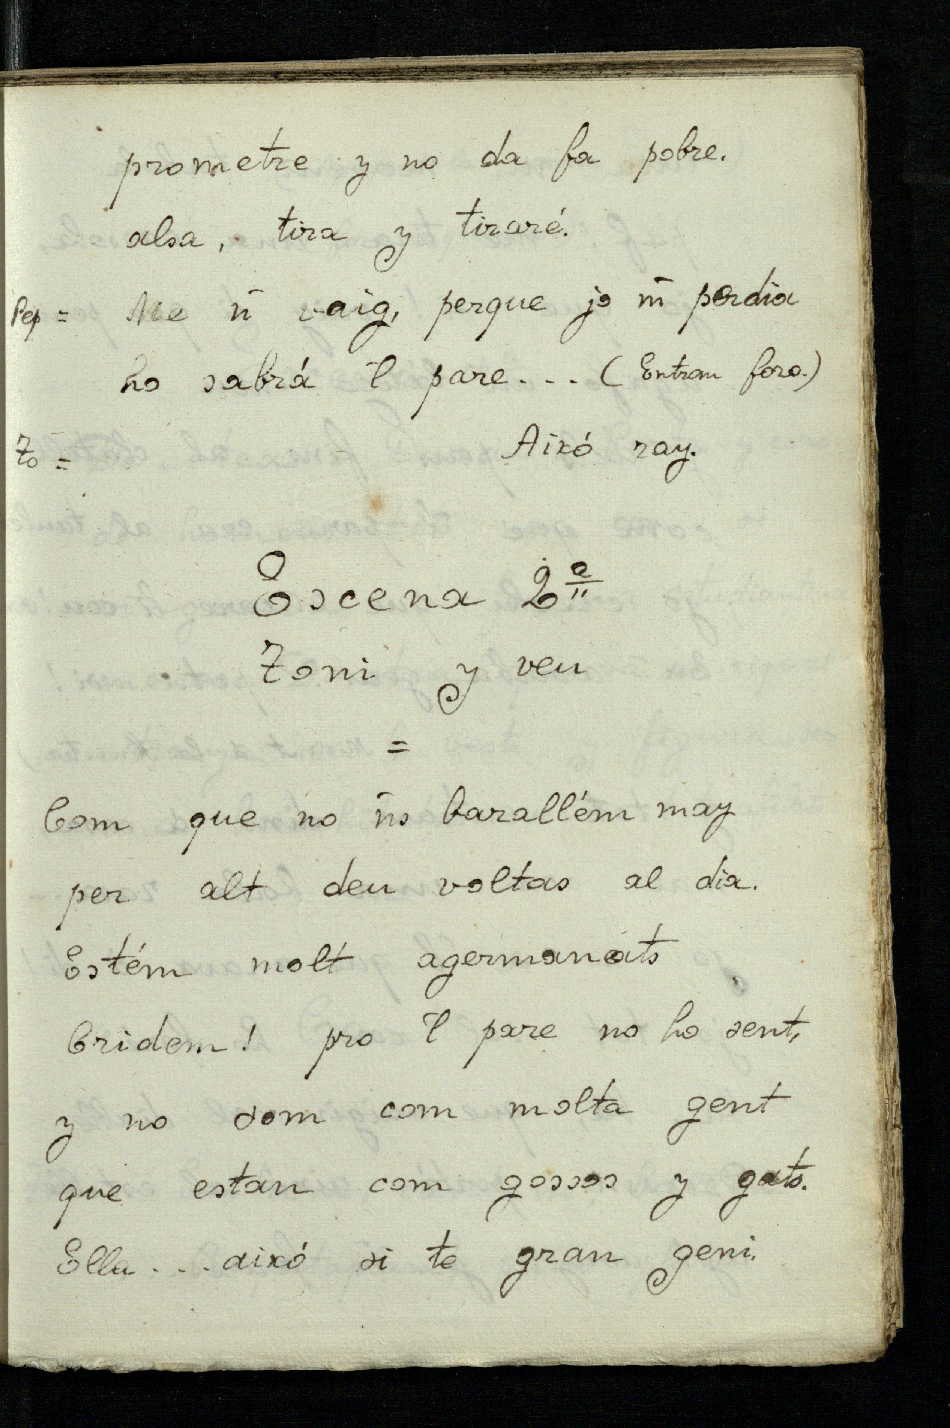 prometre y no da fa pobre.
alsa, tira y tiraré.
Pep = Me n̄ vaig, perque jo m̄ perdia
ho sabrá l̄ pare... (Entran foro.)
To = Aixó ray.
Escena 2ª
Toni y veu
=
Com que no n̄s barallém may
per alt deu voltas al dia.
Estém molt agermanats
Cridem! pro l̄ pare no ho sent,
y no som com molta gent
que estan com gossos y gats.
Ella... aixó si te gran geni.